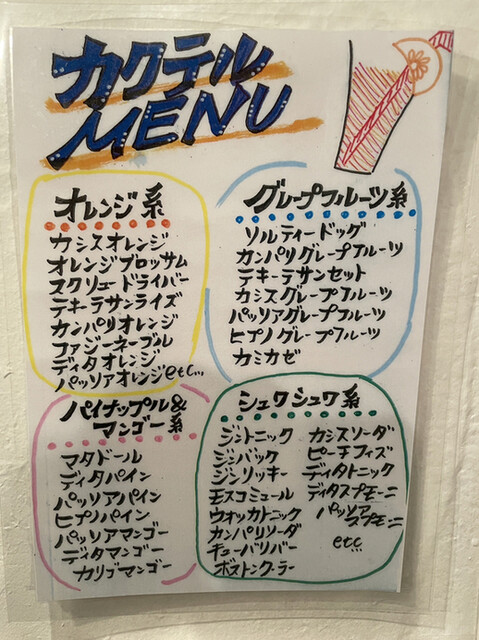 カクテル
MENU
オレンジ系
カシスオレンジ
オレンジブロッサム
スクリュードライバー
テキーラサンライズ
カンパリオレンジ
ファジーネーブル
ディタオレンジ
パッソアオレンジetc...
グレープフルーツ系
ソルティードッグ
カンパリグレープフルーツ
テキーラサンセット
カシスグレープフルーツ
パッソアグレープフルーツ
ヒプノグレープフルーツ
カミカゼ
パイナップル&
マンゴー系
マタドール
ディタパイン
パッソアパイン
ヒプノパイン
パッソアマンゴー
ディタマンゴー
カリブマンゴー
シュワシュワ系
ジントニック
ジンバック
ジンリッキー
モスコミュール
ウォッカトニック
カンパリソーダ
キューバリバー
ボストンクーラー
カシスソーダ
ピーチフィズ
ディタトニック
ディタスプモーニ
パッソア
スプモーニ
etc...